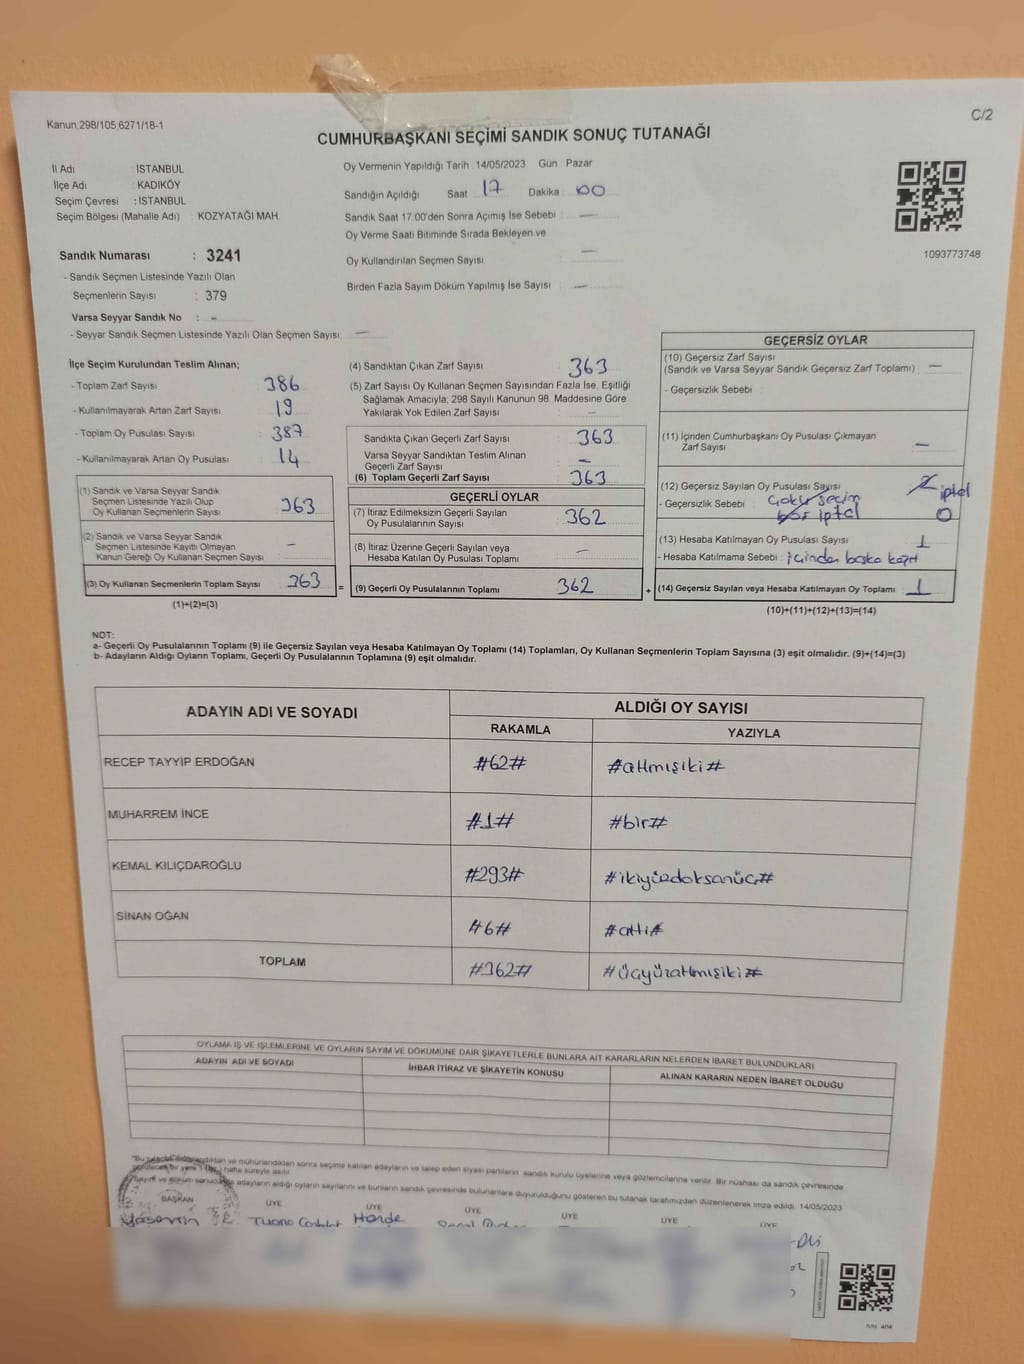 Kanun:298/105;6271/18-1
C/2
CUMHURBAŞKANI SEÇİMİ SANDIK SONUÇ TUTANAĞI
İl Adı : İSTANBUL
İlçe Adı : KADIKÖY
Seçim Çevresi : İSTANBUL
Seçim Bölgesi (Mahalle Adı) : KOZYATAĞI MAH.
Oy Vermenin Yapıldığı Tarih : 14/05/2023 Gün : Pazar
Sandığın Açıldığı Saat 17 Dakika 00
Sandık Saat 17:00'den Sonra Açımış İse Sebebi : —
Oy Verme Saati Bitiminde Sırada Bekleyen ve
Oy Kullandırılan Seçmen Sayısı : —
Birden Fazla Sayım Döküm Yapılmış İse Sayısı : —
1093773748
Sandık Numarası : 3241
- Sandık Seçmen Listesinde Yazılı Olan
Seçmenlerin Sayısı : 379
Varsa Seyyar Sandık No : -
- Seyyar Sandık Seçmen Listesinde Yazılı Olan Seçmen Sayısı: —
İlçe Seçim Kurulundan Teslim Alınan;
- Toplam Zarf Sayısı : 386
- Kullanılmayarak Artan Zarf Sayısı : 19
- Toplam Oy Pusulası Sayısı : 387
- Kullanılmayarak Artan Oy Pusulası : 14
(1) Sandık ve Varsa Seyyar Sandık
Seçmen Listesinde Yazılı Olup
Oy Kullanan Seçmenlerin Sayısı : 363
(2) Sandık ve Varsa Seyyar Sandık
Seçmen Listesinde Kayıtlı Olmayan
Kanun Gereği Oy Kullanan Seçmen Sayısı : -
(3) Oy Kullanan Seçmenlerin Toplam Sayısı : 363 =
(1)+(2)=(3)
(4) Sandıktan Çıkan Zarf Sayısı : 363
(5) Zarf Sayısı Oy Kullanan Seçmen Sayısından Fazla İse, Eşitliği
Sağlamak Amacıyla; 298 Sayılı Kanunun 98. Maddesine Göre
Yakılarak Yok Edilen Zarf Sayısı : —
Sandıkta Çıkan Geçerli Zarf Sayısı : 363
Varsa Seyyar Sandıktan Teslim Alınan
Geçerli Zarf Sayısı : —
(6) Toplam Geçerli Zarf Sayısı : 363
GEÇERLİ OYLAR
(7) İtiraz Edilmeksizin Geçerli Sayılan
Oy Pusulalarının Sayısı : 362
(8) İtiraz Üzerine Geçerli Sayılan veya
Hesaba Katılan Oy Pusulası Toplamı : —
(9) Geçerli Oy Pusulalarının Toplamı : 362 +
GEÇERSİZ OYLAR
(10) Geçersiz Zarf Sayısı
(Sandık ve Varsa Seyyar Sandık Geçersiz Zarf Toplamı) : —
- Geçersizlik Sebebi :
(11) İçinden Cumhurbaşkanı Oy Pusulası Çıkmayan
Zarf Sayısı : —
(12) Geçersiz Sayılan Oy Pusulası Sayısı : 2 iptal
- Geçersizlik Sebebi : çoklu seçim 0
boş iptal
(13) Hesaba Katılmayan Oy Pusulası Sayısı : 1
- Hesaba Katılmama Sebebi : içinden başka kağıt
(14) Geçersiz Sayılan veya Hesaba Katılmayan Oy Toplamı : 1
(10)+(11)+(12)+(13)=(14)
NOT:
a- Geçerli Oy Pusulalarının Toplam (9) ile Geçersiz Sayılan veya Hesaba Katılmayan Oy Toplamı (14) Toplamları, Oy Kullanan Seçmenlerin Toplam Sayısına (3) eşit olmalıdır. (9)+(14)=(3)
b- Adayların Aldığı Oyların Toplamı, Geçerli Oy Pusulalarının Toplamına (9) eşit olmalıdır.
ADAYIN ADI VE SOYADI
ALDIĞI OY SAYISI
RAKAMLA YAZIYLA
RECEP TAYYİP ERDOĞAN #62# #altmışiki#
MUHARREM İNCE #1# #bir#
KEMAL KILIÇDAROĞLU #293# #ikiyüzdoksanüç#
SİNAN OĞAN #6# #altı#
TOPLAM #362# #üçyüzaltmışiki#
OYLAMA İŞ VE İŞLEMLERİNE VE OYLARIN SAYIM VE DÖKÜMÜNE DAİR ŞİKAYETLERLE BUNLARA AİT KARARLARIN NELERDEN İBARET BULUNDUKLARI
ADAYIN ADI VE SOYADI İHBAR İTİRAZ VE ŞİKAYETİN KONUSU ALINAN KARARIN NEDEN İBARET OLDUĞU
ve mühürlendikten sonra seçime katılan adayların ve talep eden siyasi partilerin sandık kurulu üyelerine veya gözlemcilerine verilir. Bir nüshası da sandık çevresinde
hafta süreyle asılır.
adayların aldığı oyların sayılarını ve bunların sandık çevresinde bulunanlara duyurulduğunu gösteren bu tutanak tarafımızdan düzenlenerek imza edildi. 14/05/2023
BAŞKAN ÜYE ÜYE ÜYE ÜYE ÜYE ÜYE
Yasemin